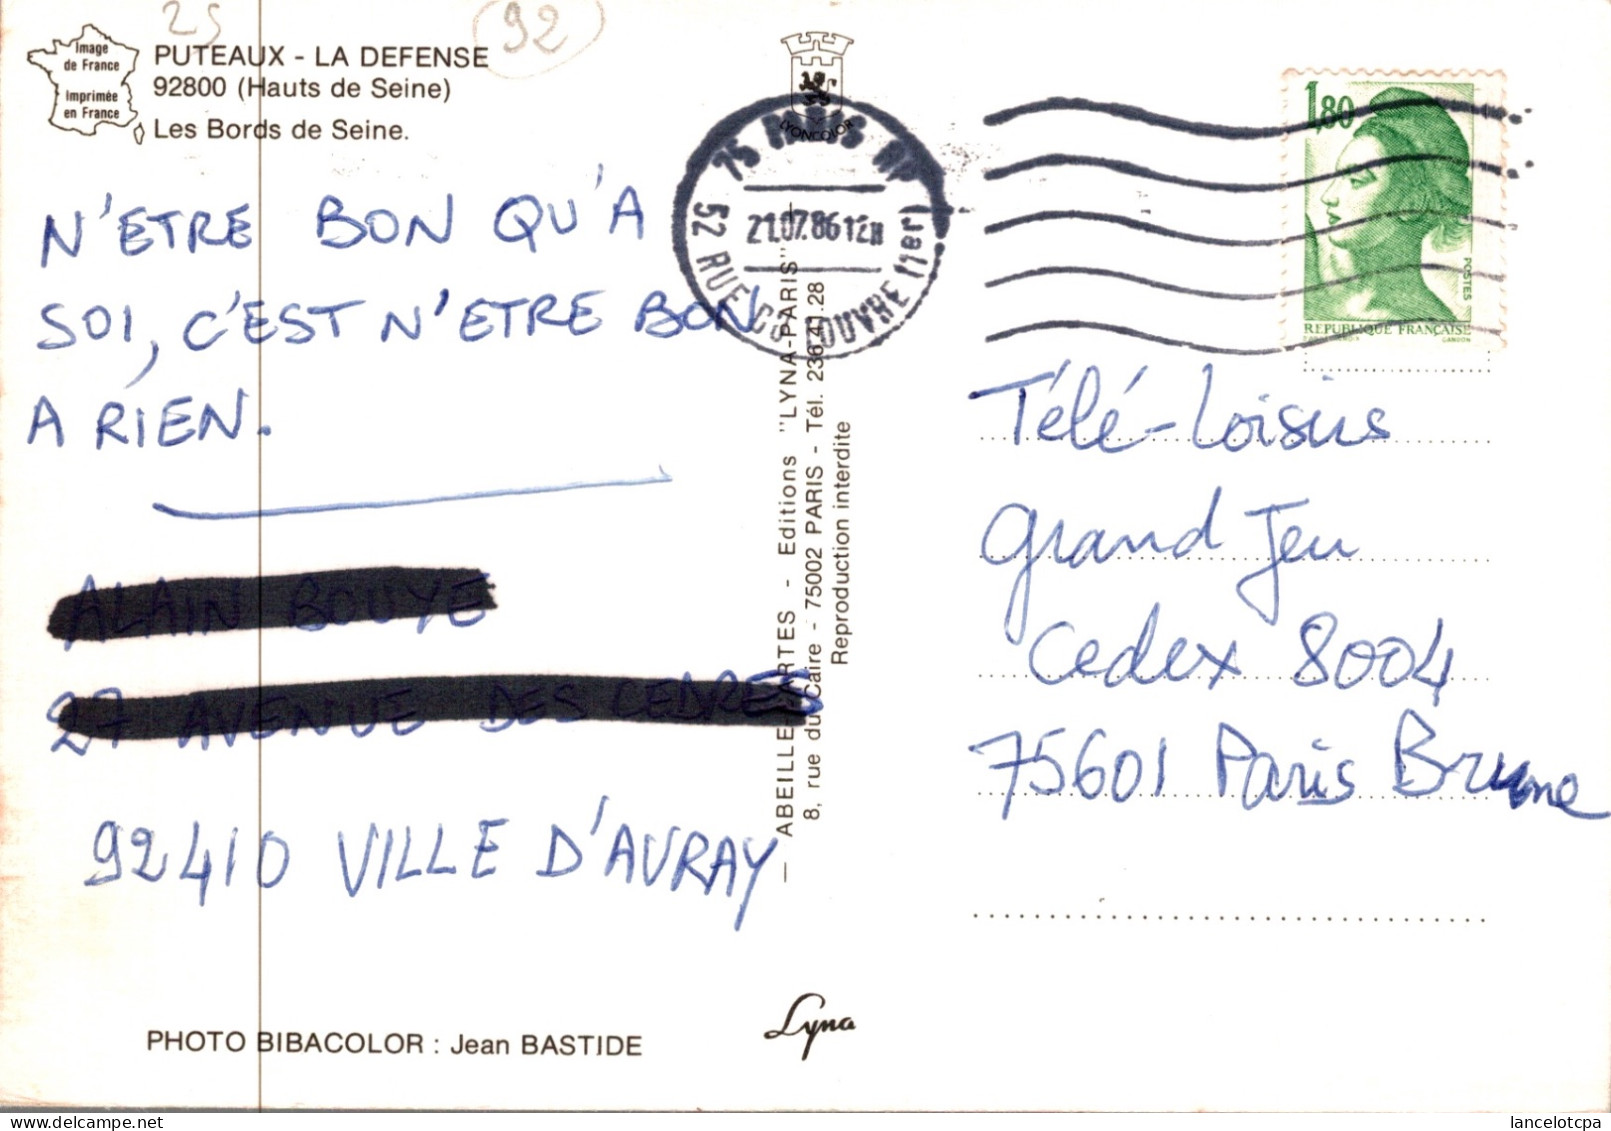 25
92
Image
de France
Imprimée
en France
PUTEAUX - LA DEFENSE
92800 (Hauts de Seine)
Les Bords de Seine.
N'ETRE BON QU'A
SOI, C'EST N'ETRE BON
A RIEN.
92410 VILLE D'AVRAY
PHOTO BIBACOLOR : Jean BASTIDE
LYONCOLOR
75 PARIS RP
21.07.86 12H
52 RUE DU LOUVRE (1er)
ABEILLE-CARTES - Editions "LYNA-PARIS"
8, rue du Caire - 75002 PARIS - Tél. 236.41.28
Reproduction interdite
Lyna
1,80
POSTES
REPUBLIQUE FRANÇAISE
GANDON
Télé-Loisirs
Grand Jeu
Cedex 8004
75601 Paris Brune
lancelotcpa